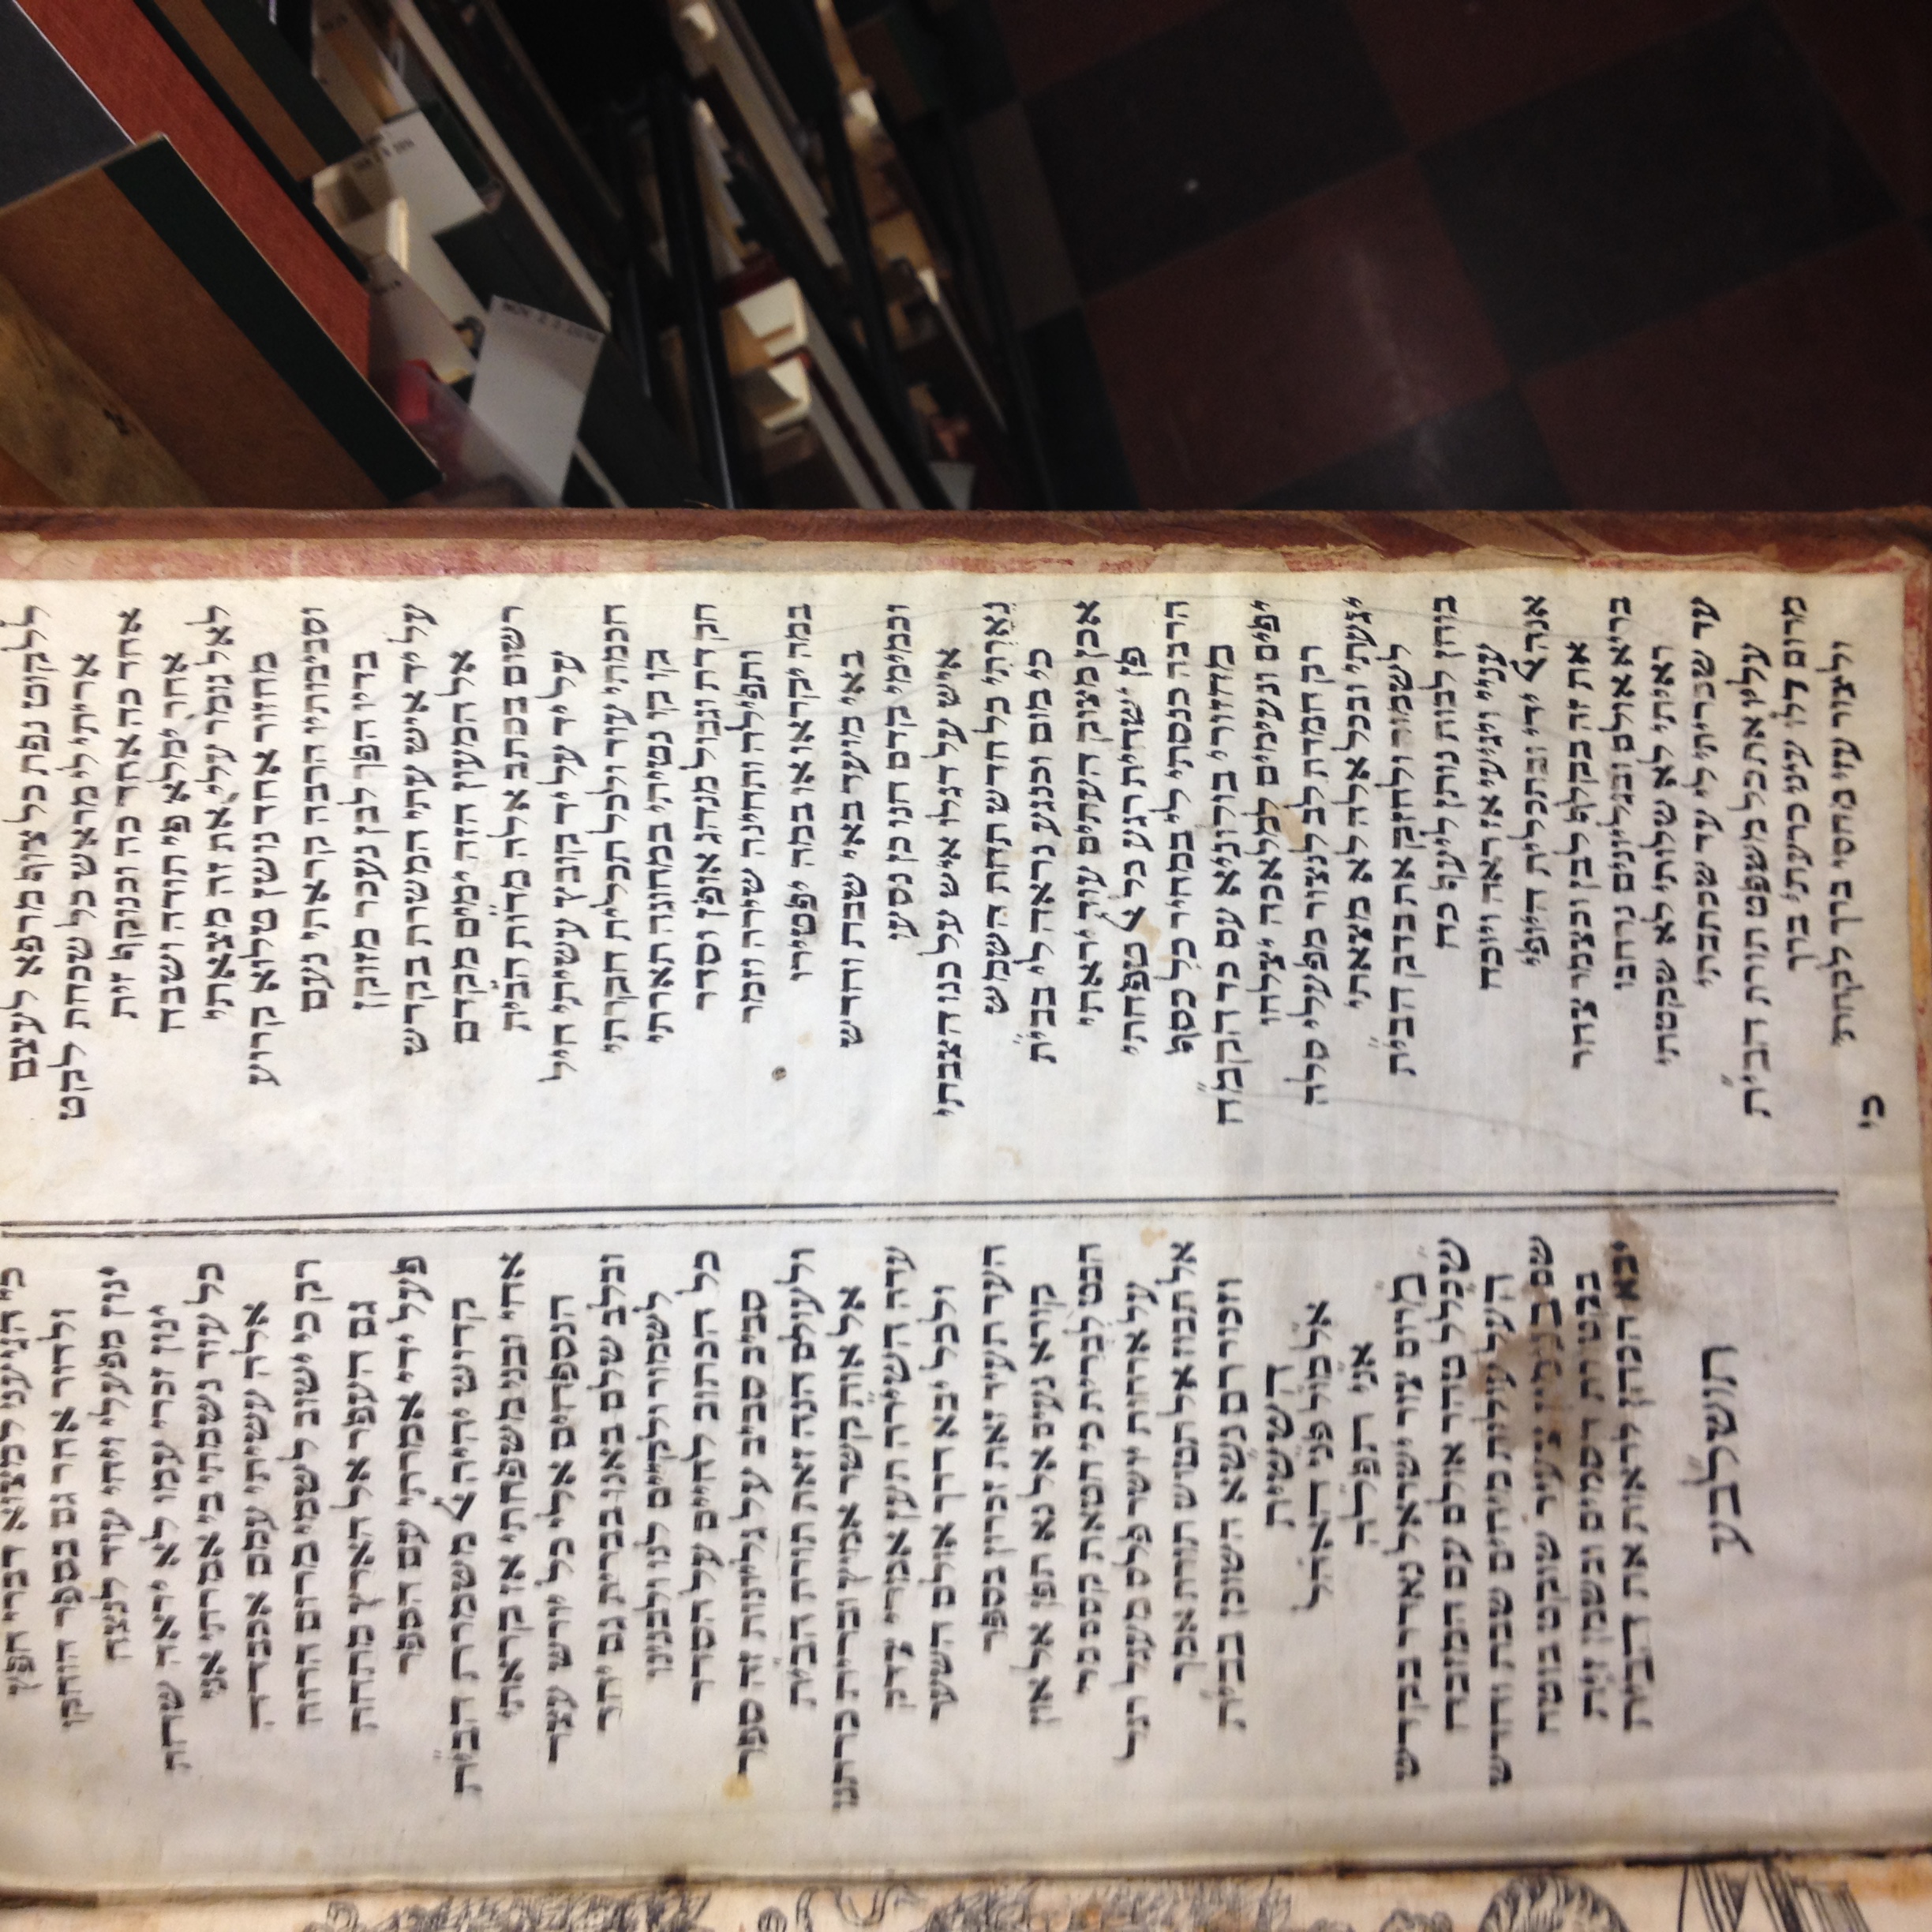 ללקוט נפת כל צוף מרפא לעצם
אריתי לי מראש כל שכחת לקט
אחד כה אחד כה וכנוקף זית
אחר ימלא פי תודה ושבח
לאל גומר עלי את זה מצאתי
מחזור אחד נושן טלוא קרוע
וסביבותיו הרבה קראתי נעם
בדיו הפך לבן נעכר מזוקן
על יד איש עתי המשרת בקדש
אל המעון הזה ימים מקדם
רשום בכתב אלה מדות הבי״ת
על יד על יד קובץ עשיתי חיל
חכמתי עוד ולכל תכלית חקרתי
קו קו נטיתי במחוגה תארתי
חק דת וגבול מנהג אופן וסדר
ותפילה ותחינה שירה וזמר
במה יקראו או במה יפטירו
באי מועד באי שבת וחדש
וכמימי קדם חנו כן נסעו
איש על דגלו איש על כנו הצבתי
נֵאַרְתִּי כל חדש תחת השמש
כי מום וכנגע נראה לי בבי״ת
אכן מצוק העתים עוד יראתי
פן ישחית רגע כל ﭏ טפחתי
הרבה כנסתי לי במחיר כל כסף
מחזורי בולוניא עם כד הקמ״ח
יפים ונעימים למלאכה יצלחו
רק חמדת לב לנצור מפעלי סלה
יגעתי ובכל אלה לא מצאתי
לשמור ולחזק את בדק הבי״ת
בוחן לבות נותן ליעף כח
עניי ויגיעי אז ראה ויוכח
אנהﭏ ידי ובתכלית היופי
את זה בקלף לבן וכצמר צחר
בריא אולם ובגליונים נרחבו
ראיתי לא שלותי לא שקטתי
עד שבריתי לי עד שכתבתי
עליו את כל משפט תורת הבי״ת
מרום דלו עיני כרעתי ברך
ולצור עזי מחסי ברך לקחתי
כי
כי הגיעני למצוא דברי חפץ
ולדור אחר גם בספר הוחקו
ינון מפעלי ויחי עוד לנצח
ינון זכרי עמו לא יראה שחת
כל עוד נשמתי בי אמרתי אני
אלה עשיתי עמם אכבדה
רק כי ישוב לשמי מרום הרוח
גם העפר אל הארץ מתחת
פעל ידי אמרתי עם הספר
קדוש יהיה ﭏ משמרת הבי״ת
אחי ובני משפחתי אז קראתי
הנספחים אלי כל יורש עצר
ובלב שלם באנו בברית גם יחד
לשמור ולקיים לנו ולבנינו
כל הכתוב לחיים על הסדר
סביב סביב על גליונות זה ספר
ולעולם הנה זאת תורת הבי״ת
אל אות קשר אמיץ וברית כרתנו
עדה השירה תען אמרי צדק
ולכל יבא דרך אולם השער
העד תעיד זאת זכרון בספר
קורא נעים אל נא תפן אל און
הבט לברית כי חטאת קסם מרי
על ארחות יושר פלס מעגל רגל
אל תבוז אל תטוש תורת אמך
וזכור רם נשא השוכן בבי״ת
הששית
אל מול פני האהל
אני תפלה
מרום צור ישראל נאדר בקדש
שכלל טהר אולם עם המזבח
העל עולות מיחים שבת וחדש
שם בנימין צעיר שוקט בוטח
בקטורת הסמים ובשמן זית
יבא הכהן לראות את הבית
תושלבע